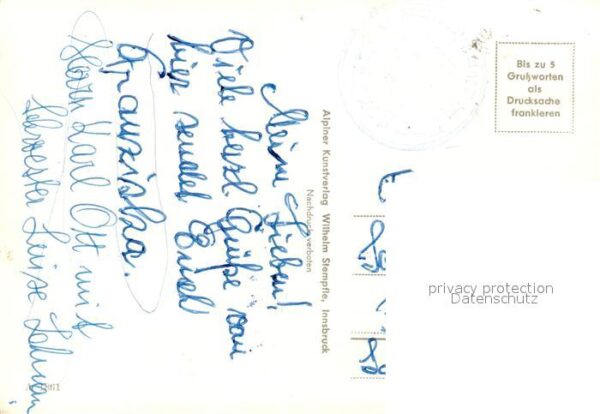 Meine Lieben!
Viele herzl Grüße von
hier sendet Euch
Franziska.
Herrn Karl Ott mit
Schwester Luise
Alpiner Kunstverlag Wilhelm Stempfle, Innsbruck
Nachdruck verboten
Bis zu 5
Grußworten
als
Drucksache
frankieren
privacy protection
Datenschutz